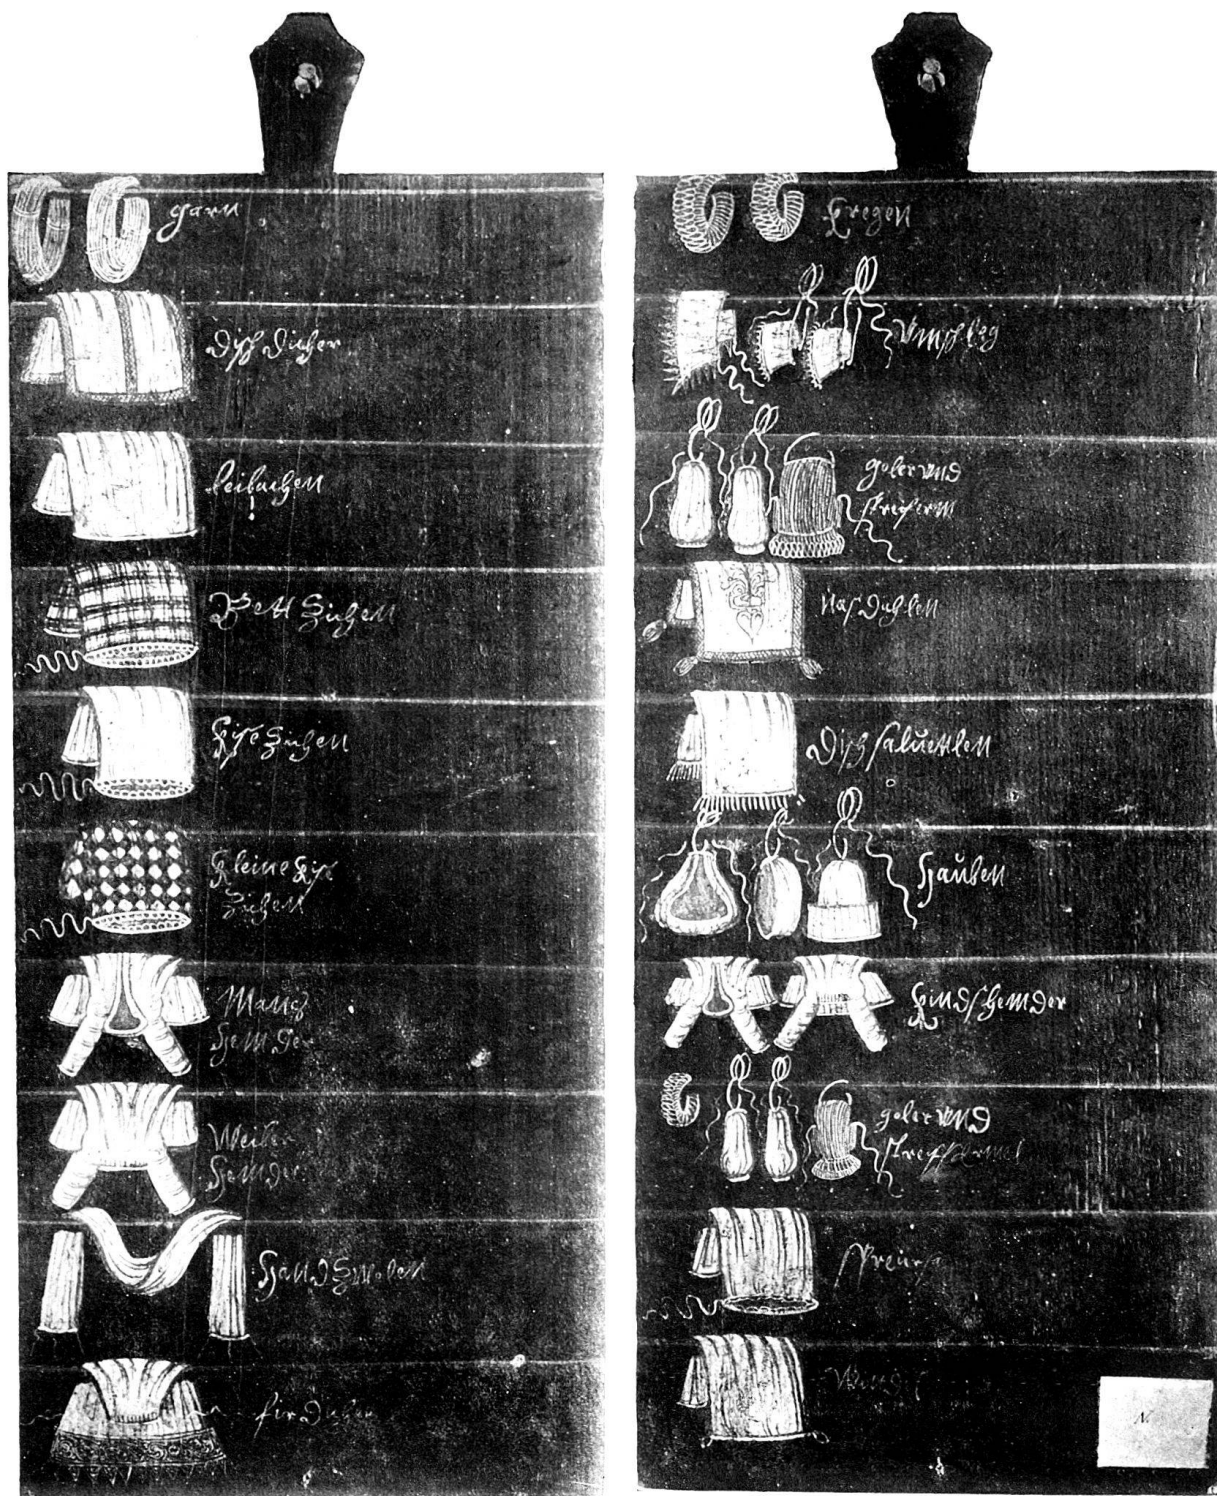 garn
Disch Dücher
leilachen
Bett Ziechen
Kiße Ziechen
Kleine Kiße
Ziechen
Manß
Hemder
Weiber
Hemder
Hand Zwelen
fir Dücher
Kregen
Vmschleg
goler vnd
Nas Dichlen
Disch saluetlen
Hauben
Kinds hemder
goler vnd